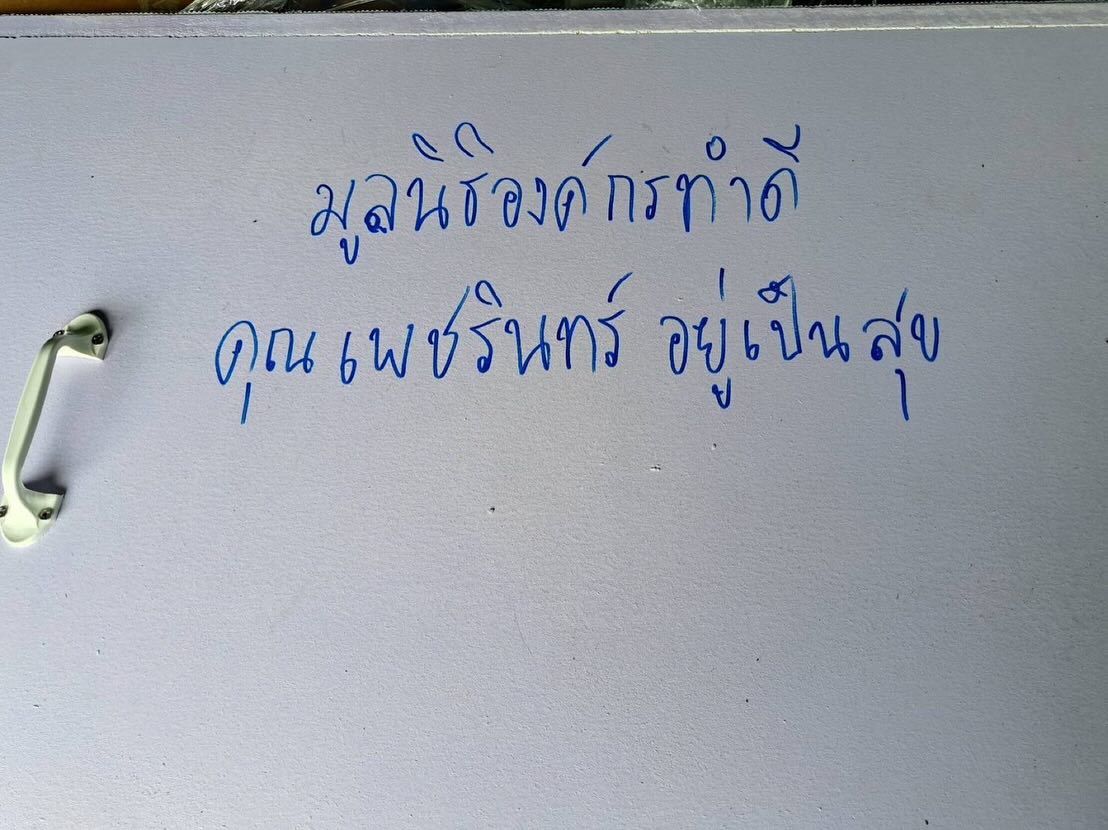 มูลนิธิองค์กรทำดี
คุณเพชรินทร์ อยู่เป็นสุข